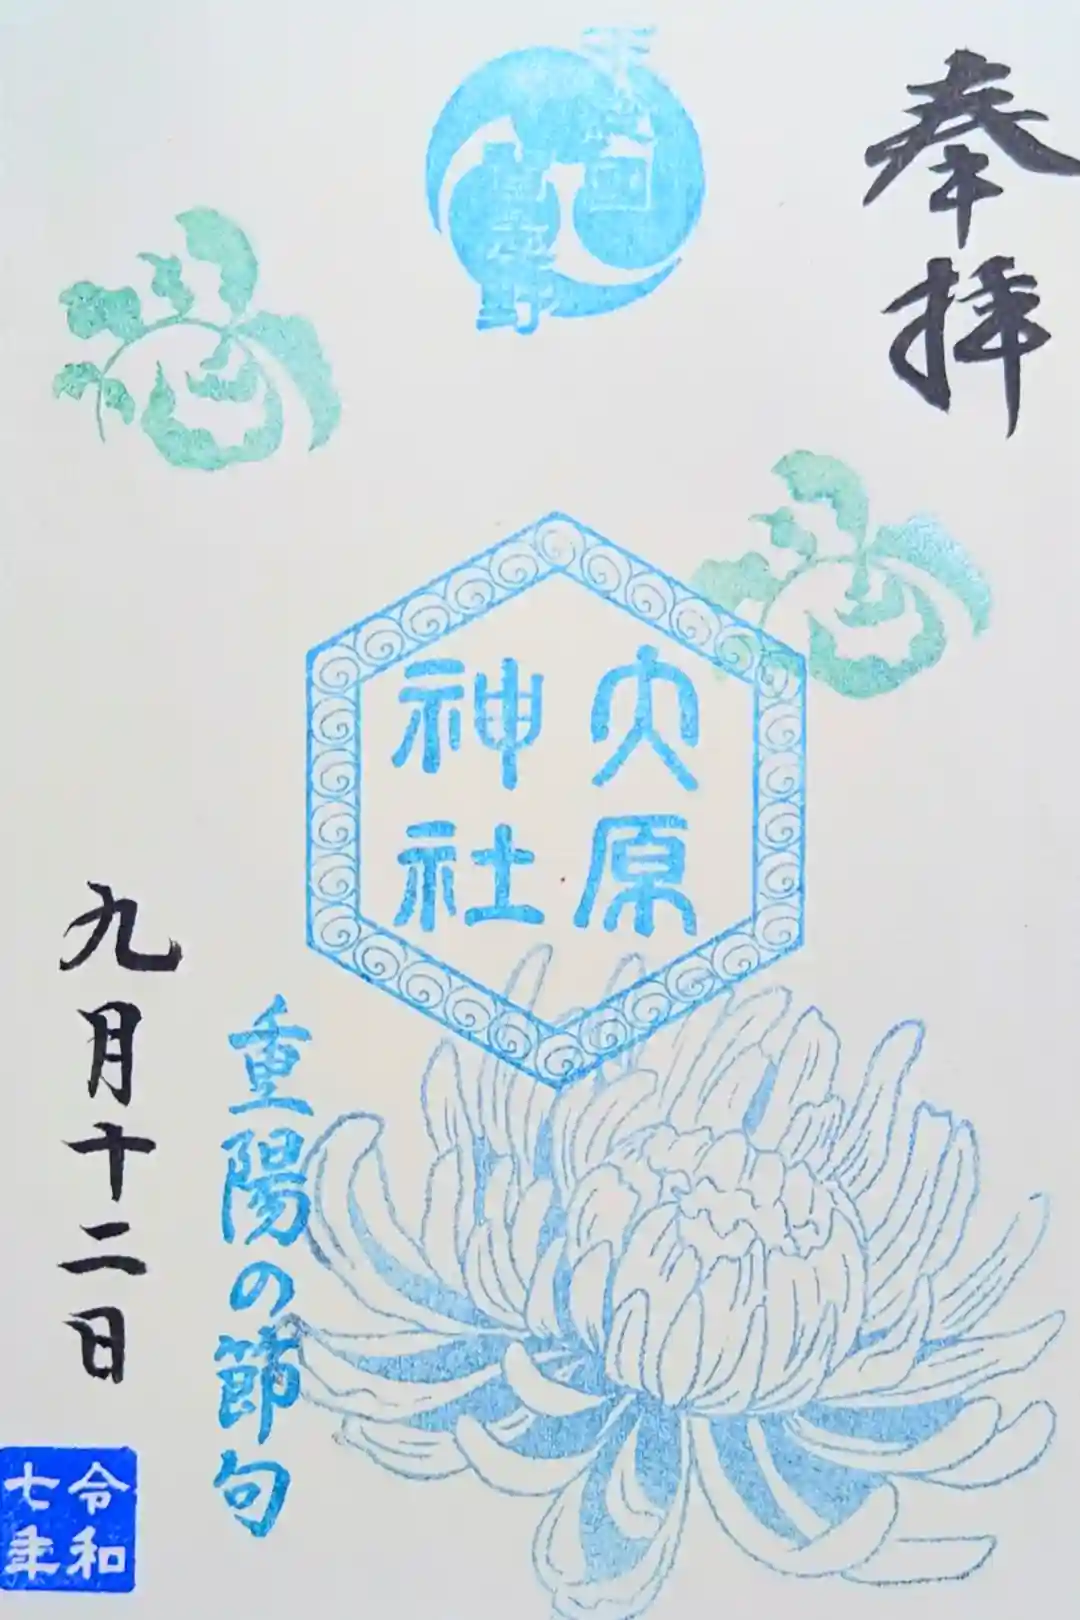 奉拝
大原
神社
重陽の節句
九月十二日
令和
七年